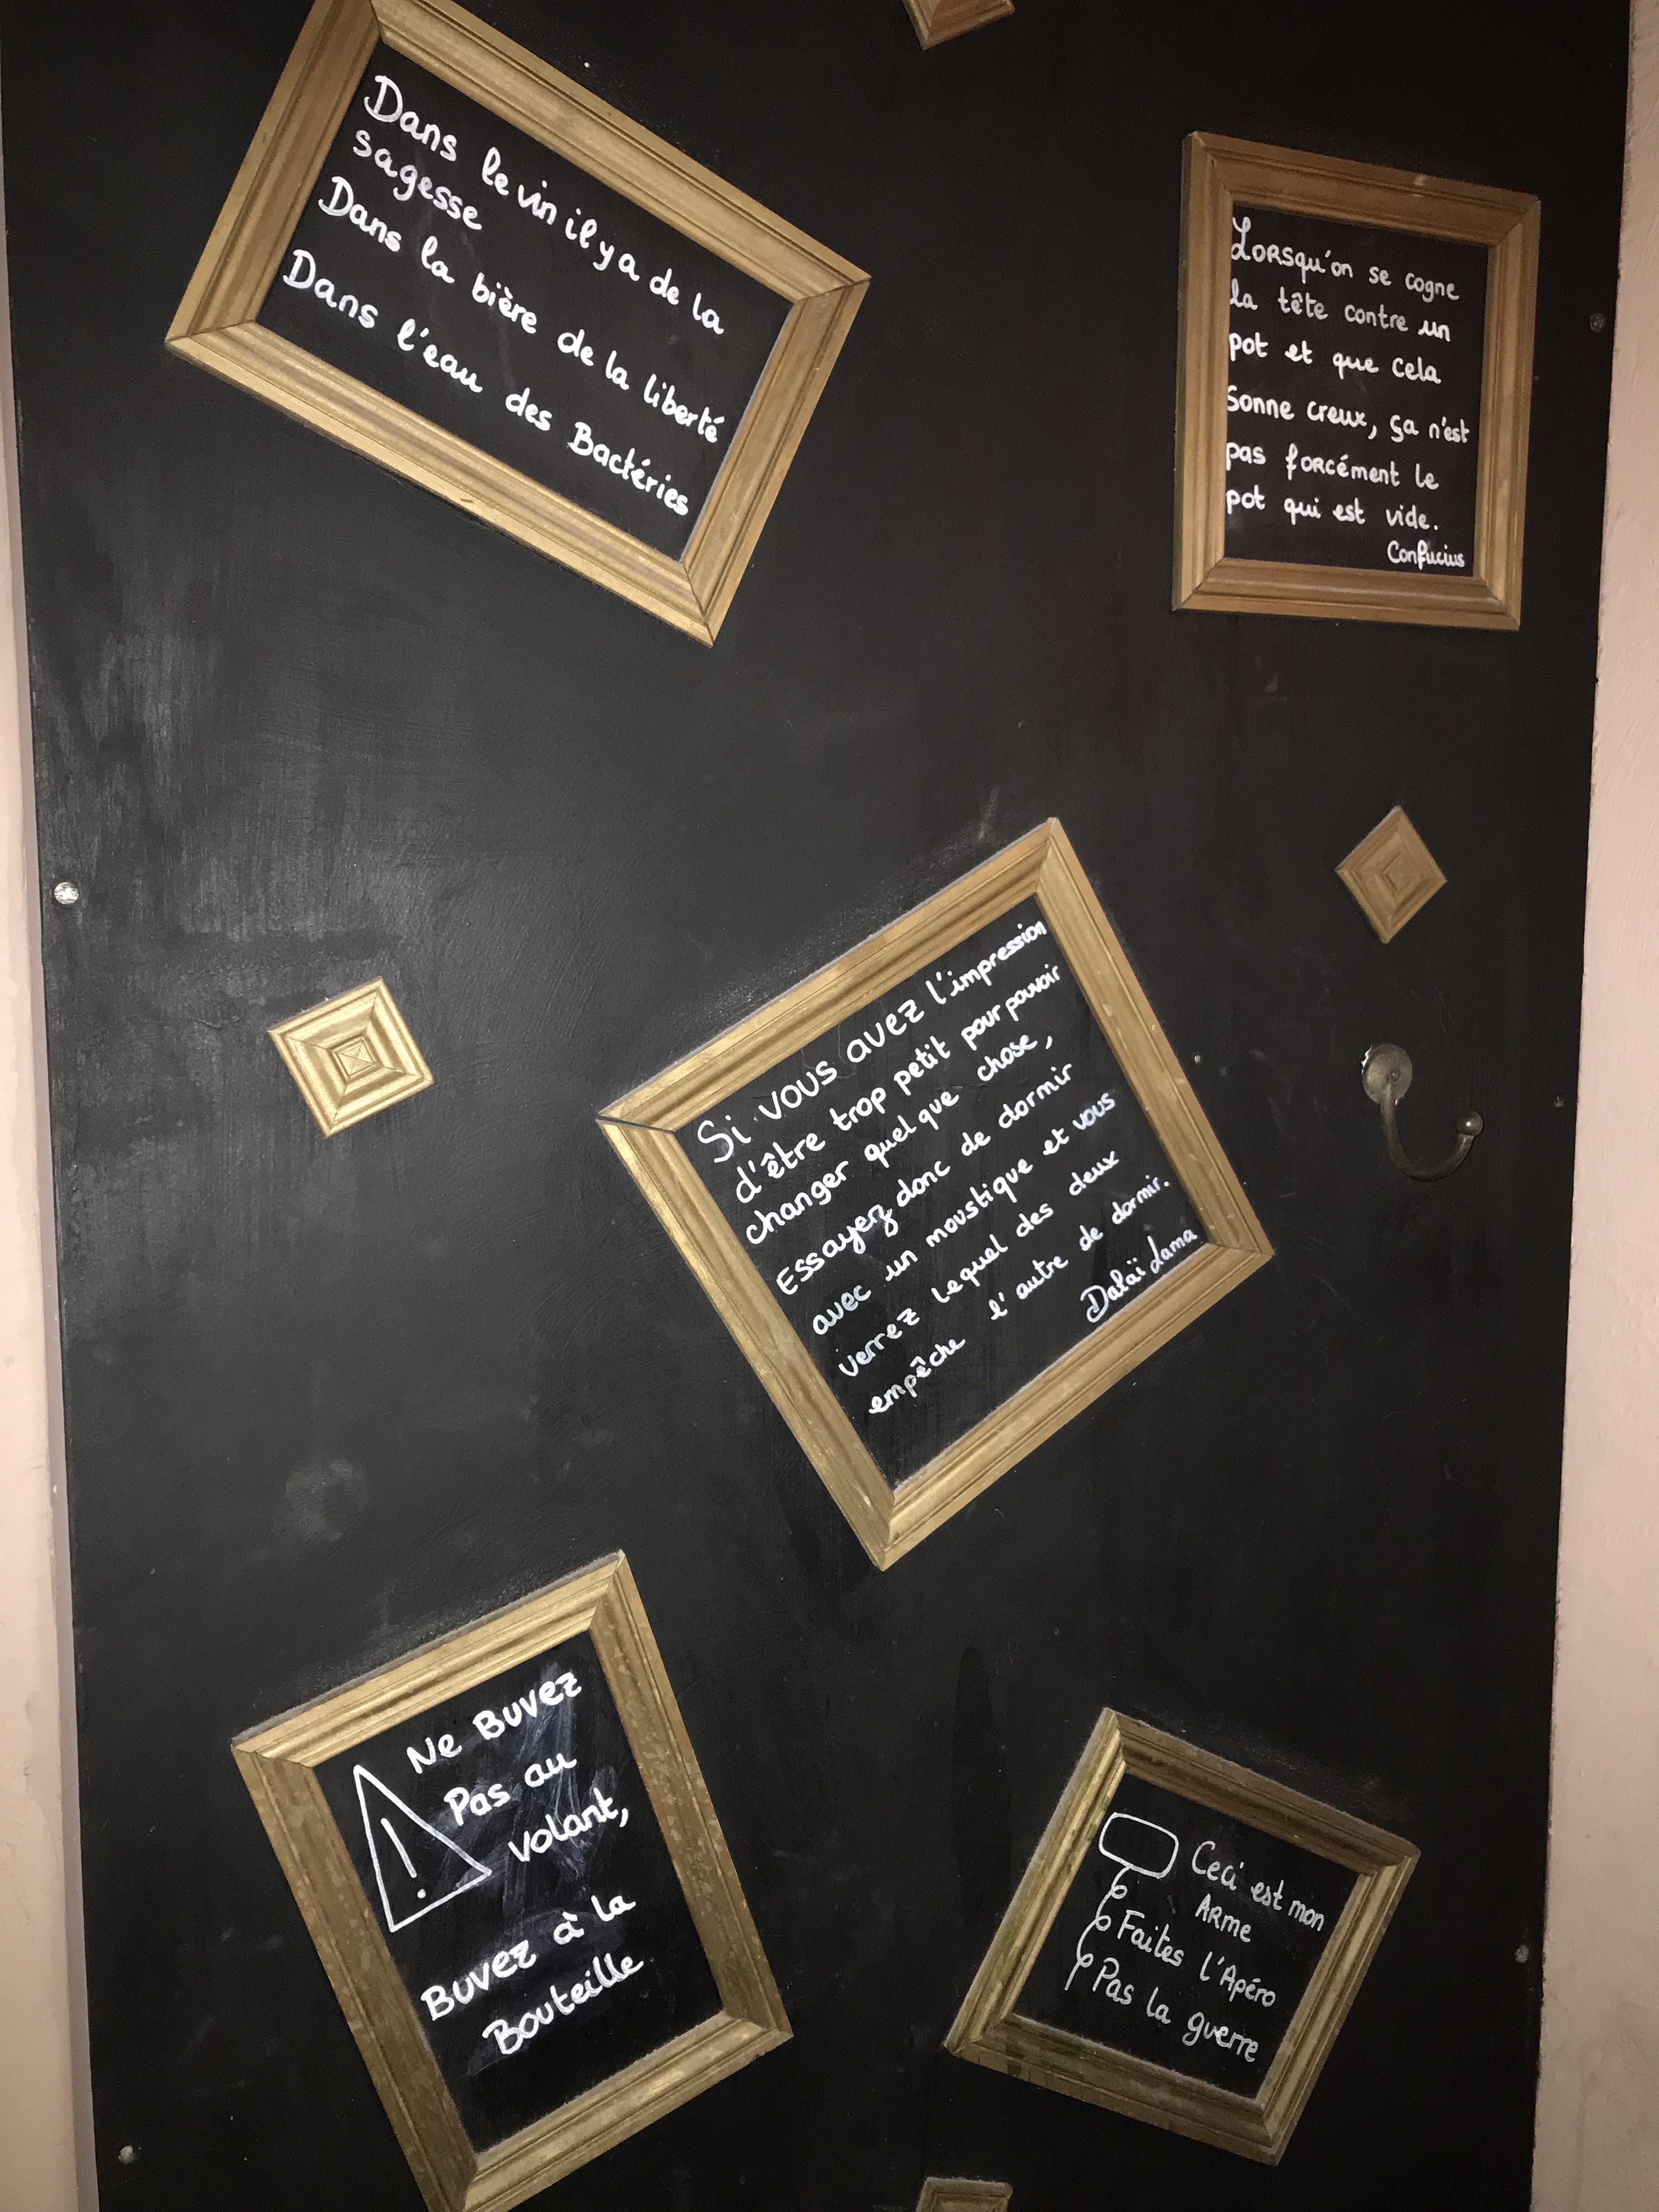 Dans le vin il y a de la
sagesse
Dans la bière de la liberté
Dans l'eau des Bactéries
Lorsqu'on se cogne
la tête contre un
pot et que cela
sonne creux, ça n'est
pas forcément le
pot qui est vide.
Confucius
Si vous avez l'impression
d'être trop petit pour pouvoir
changer quelque chose,
Essayez donc de dormir
avec un moustique et vous
verrez lequel des deux
empêche l'autre de dormir.
Dalaï Lama
Ne Buvez
Pas au
volant,
Buvez à la
Bouteille
Ceci est mon
Arme
Faites l'Apéro
Pas la guerre